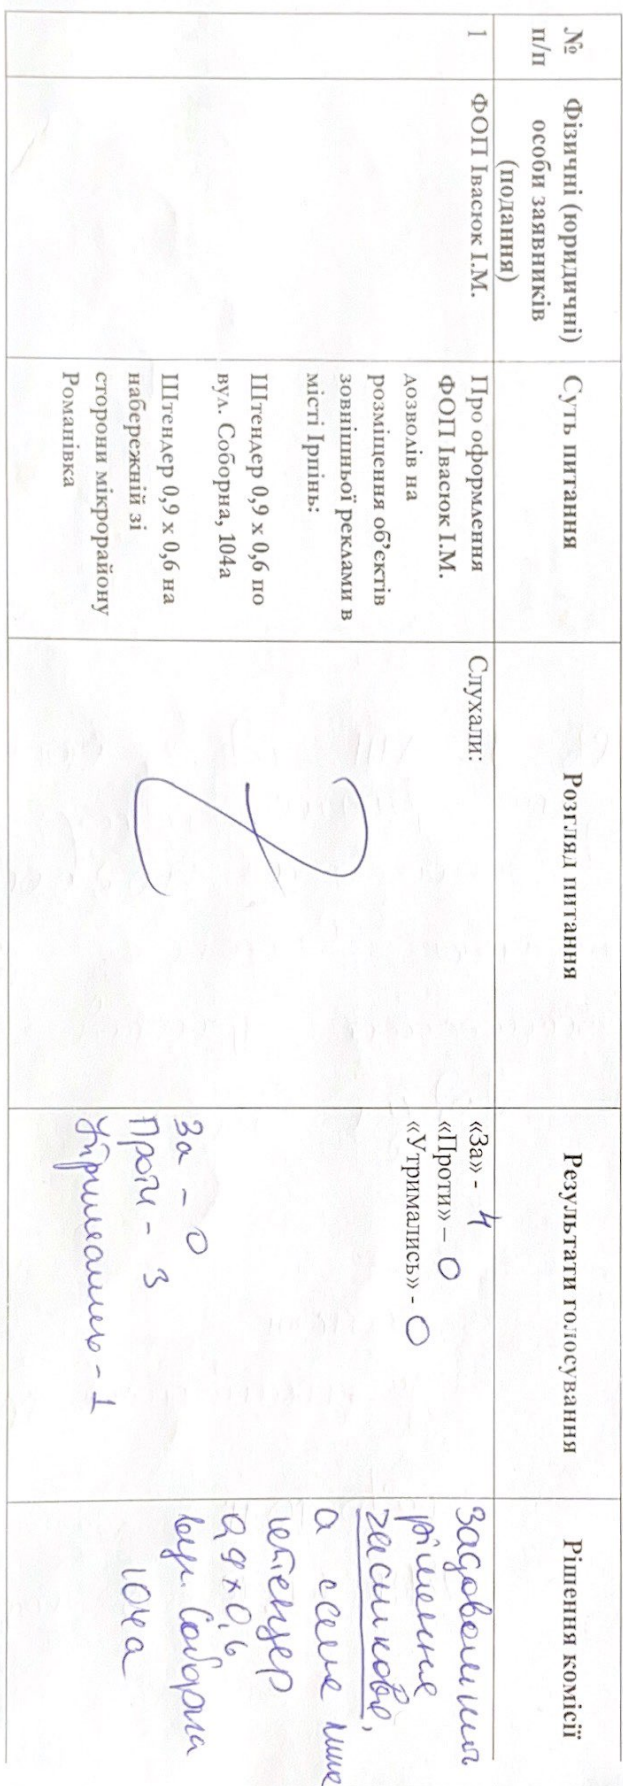 №
п/п
Фізичні (юридичні)
особи заявників
(подання)
Суть питання
Розгляд питання
Результати голосування
Рішення комісії
1
ФОП Івасюк І.М.
Про оформлення
ФОП Івасюк І.М.
дозволів на
розміщення об'єктів
зовнішньої реклами в
місті Ірпінь:
Штендер 0,9 х 0,6 по
вул. Соборна, 104а
Штендер 0,9 х 0,6 на
набережній зі
сторони мікрорайону
Романівка
Слухали:
«За» - 4
«Проти» – 0
«Утримались» - 0
За - 0
Проти - 3
Утримались - 1
Задовольнити
рішення
частково,
а саме лише
штендер
0,9 х 0,6
вул. Соборна
104а